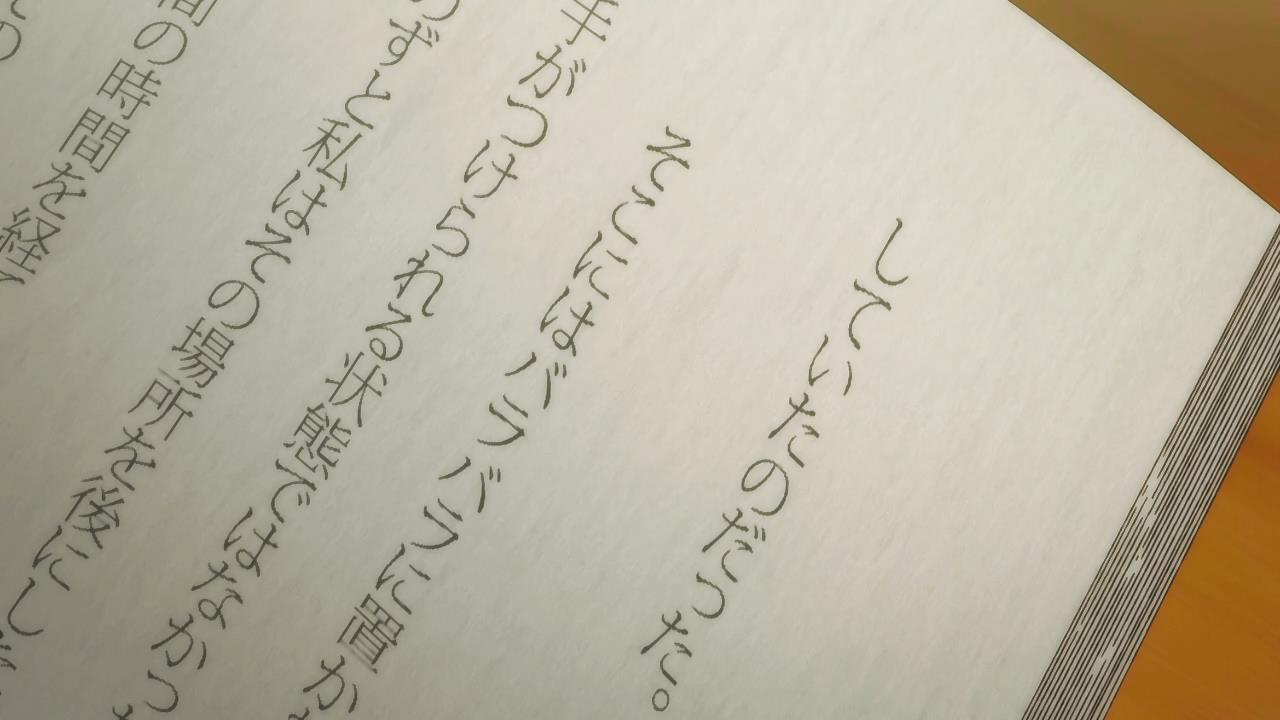 していたのだった。
そこにはバラバラに置か
手がつけられる状態ではなかっ
のずと私はその場所を後にし
間の時間を経